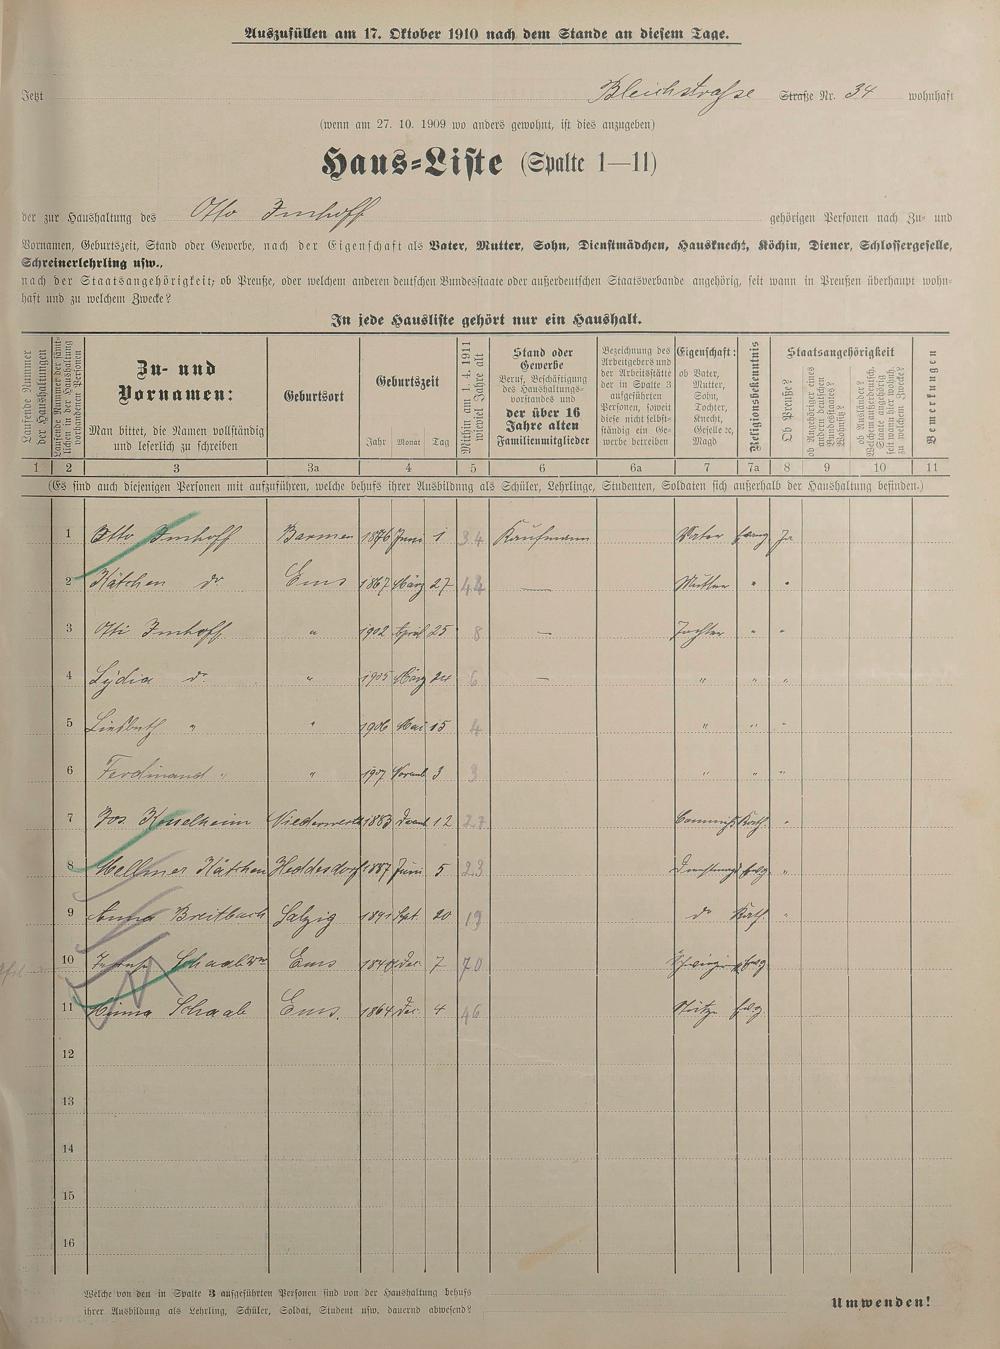 Auszufüllen am 17. Oktober 1910 nach dem Stande an diesem Tage.
Jetzt Bleichstraße Straße Nr. 34 wohnhaft
(wenn am 27. 10. 1909 wo anders gewohnt, ist dies anzugeben)
Haus-Liste (Spalte 1—11)
der zur Haushaltung des Otto Imhoff gehörigen Personen nach Zu- und
Vornamen, Geburtszeit, Stand oder Gewerbe, nach der Eigenschaft als Vater, Mutter, Sohn, Dienstmädchen, Hausknecht, Köchin, Diener, Schlossergeselle,
Schreinerlehrling usw.,
nach der Staatsangehörigkeit; ob Preuße, oder welchem anderen deutschen Bundesstaate oder außerdeutschen Staatsverbande angehörig, seit wann in Preußen überhaupt wohn-
haft und zu welchem Zwecke?
In jede Hausliste gehört nur ein Haushalt.
Laufende Nummer der Haushaltungen
Laufende Nummer der sämtlichen in der Haushaltung vorhandenen Personen
Zu- und
Vornamen:
Man bittet, die Namen vollständig
und leserlich zu schreiben
Geburtsort
Geburtszeit
Jahr Monat Tag
Mithin am 1. 4. 1911 wieviel Jahre alt
Stand oder
Gewerbe
Beruf, Beschäftigung
des Haushaltungs-
vorstandes und
der über 16
Jahre alten
Familienmitglieder
Bezeichnung des
Arbeitgebers und
der Arbeitsstätte
der in Spalte 3
aufgeführten
Personen, soweit
diese nicht selbst-
ständig ein Ge-
werbe betreiben
Eigenschaft:
ob Vater,
Mutter,
Sohn,
Tochter,
Knecht,
Geselle ꝛc,
Magd
Religionsbekenntnis
Staatsangehörigkeit
Ob Preuße?
ob Angehöriger eines
andern deutschen
Bundesstaates?
Wohnsitz?
ob Ausländer?
Welchem außerdeutsch.
Staate angehörig
seit wann hier wohnh.
zu welchem Zwecke?
Bemerkungen
1 2 3 3a 4 5 6 6a 7 7a 8 9 10 11
(Es sind auch diejenigen Personen mit aufzuführen, welche behufs ihrer Ausbildung als Schüler, Lehrlinge, Studenten, Soldaten sich außerhalb der Haushaltung befinden.)
1 Otto Imhoff Barmen 1876 Juni 1 34 Kaufmann Vater evang Ja
2 Kätchen do Ems 1867 März 27 44 — Mutter " "
3 Otti Imhoff " 1902 April 25 8 — Tochter " "
4 Lydia do " 1905 März 24 6 — " " "
5 Liesbeth " " 1906 Mai 15 4 " " "
6 Ferdinand " " 1907 Novemb 3 3 " " "
7 Jos. Niederwerth 1883 Dezemb 12 27 Commis Kath. "
8 Kätchen Heddesdorf 1887 Juni 5 23 evg "
9 Anna Breitbach Salzig 1891 Spt. 20 19 do Kath. "
10 Schaab Wwe Ems 1840 Dec. 7 70 evg
11 Schaab Ems. 1864 Dec. 4 46 Stütze evg
12
13
14
15
16
Welche von den in Spalte 3 aufgeführten Personen sind von der Haushaltung behufs
ihrer Ausbildung als Lehrling, Schüler, Soldat, Student usw. dauernd abwesend?
Umwenden!